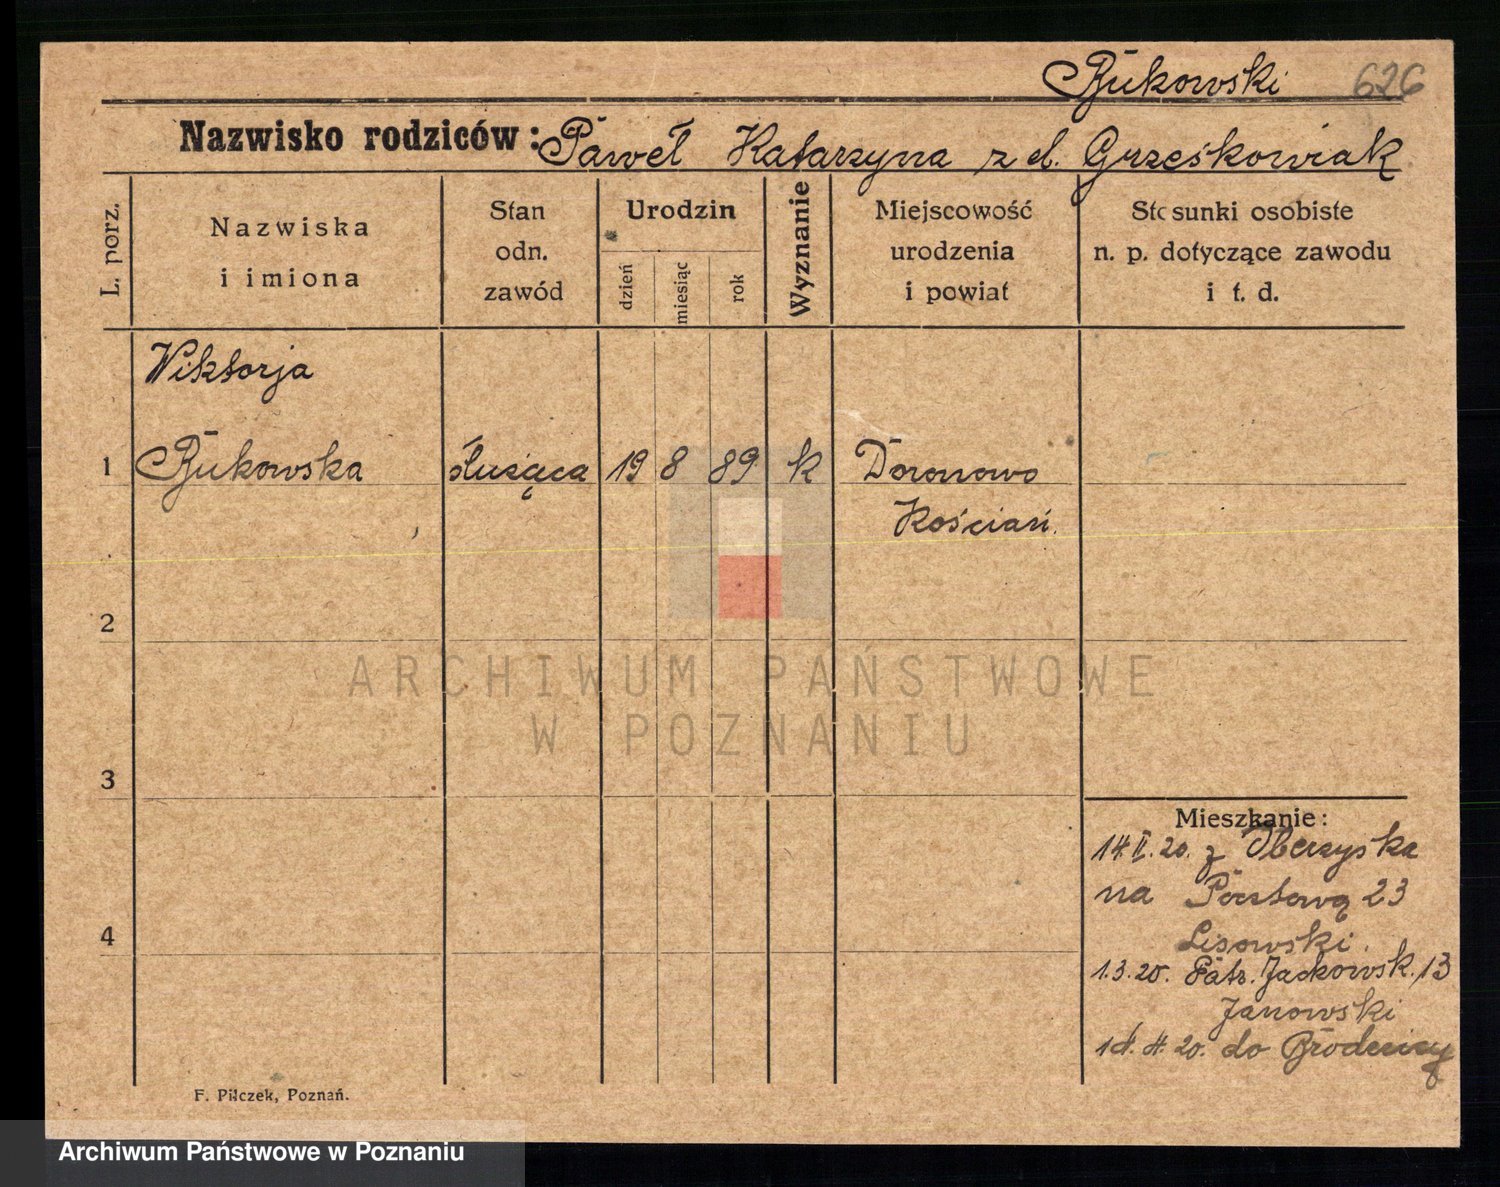 Bukowski 626
Nazwisko rodziców: Paweł Katarzyna z d. Grześkowiak
L. porz.
Nazwiska
i imiona
Stan
odn.
zawód
Urodzin
dzień
miesiąc
rok
Wyznanie
Miejscowość
urodzenia
i powiat
Stosunki osobiste
n. p. dotyczące zawodu
i t. d.
Wiktorja
1 Bukowska służąca 19 8 89 k Doronowo
Kościań.
2
3
4
Mieszkanie:
14. II. 20. z Oberzyska
na Pocztową 23
Lisowski.
1.3.20. Patr. Jackowsk. 13
Janowski
20. do
F. Pilczek, Poznań.
ARCHIWUM PAŃSTWOWE
W POZNANIU
Archiwum Państwowe w Poznaniu